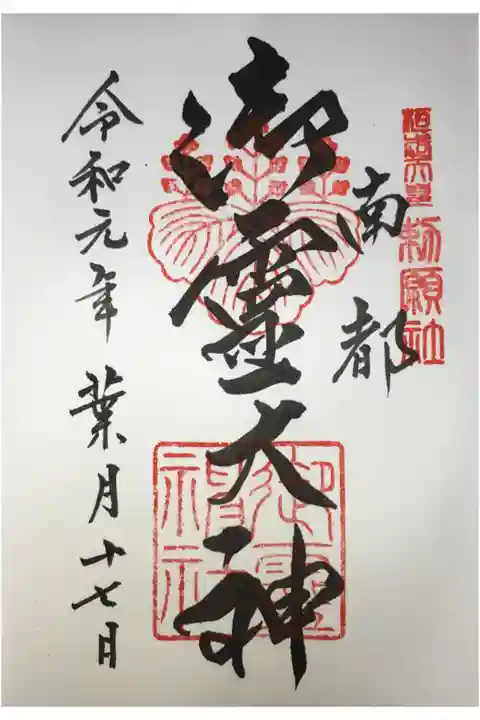 桓武天皇勅願社
南都
御霊大神
御霊神社
令和元年 葉月十七日